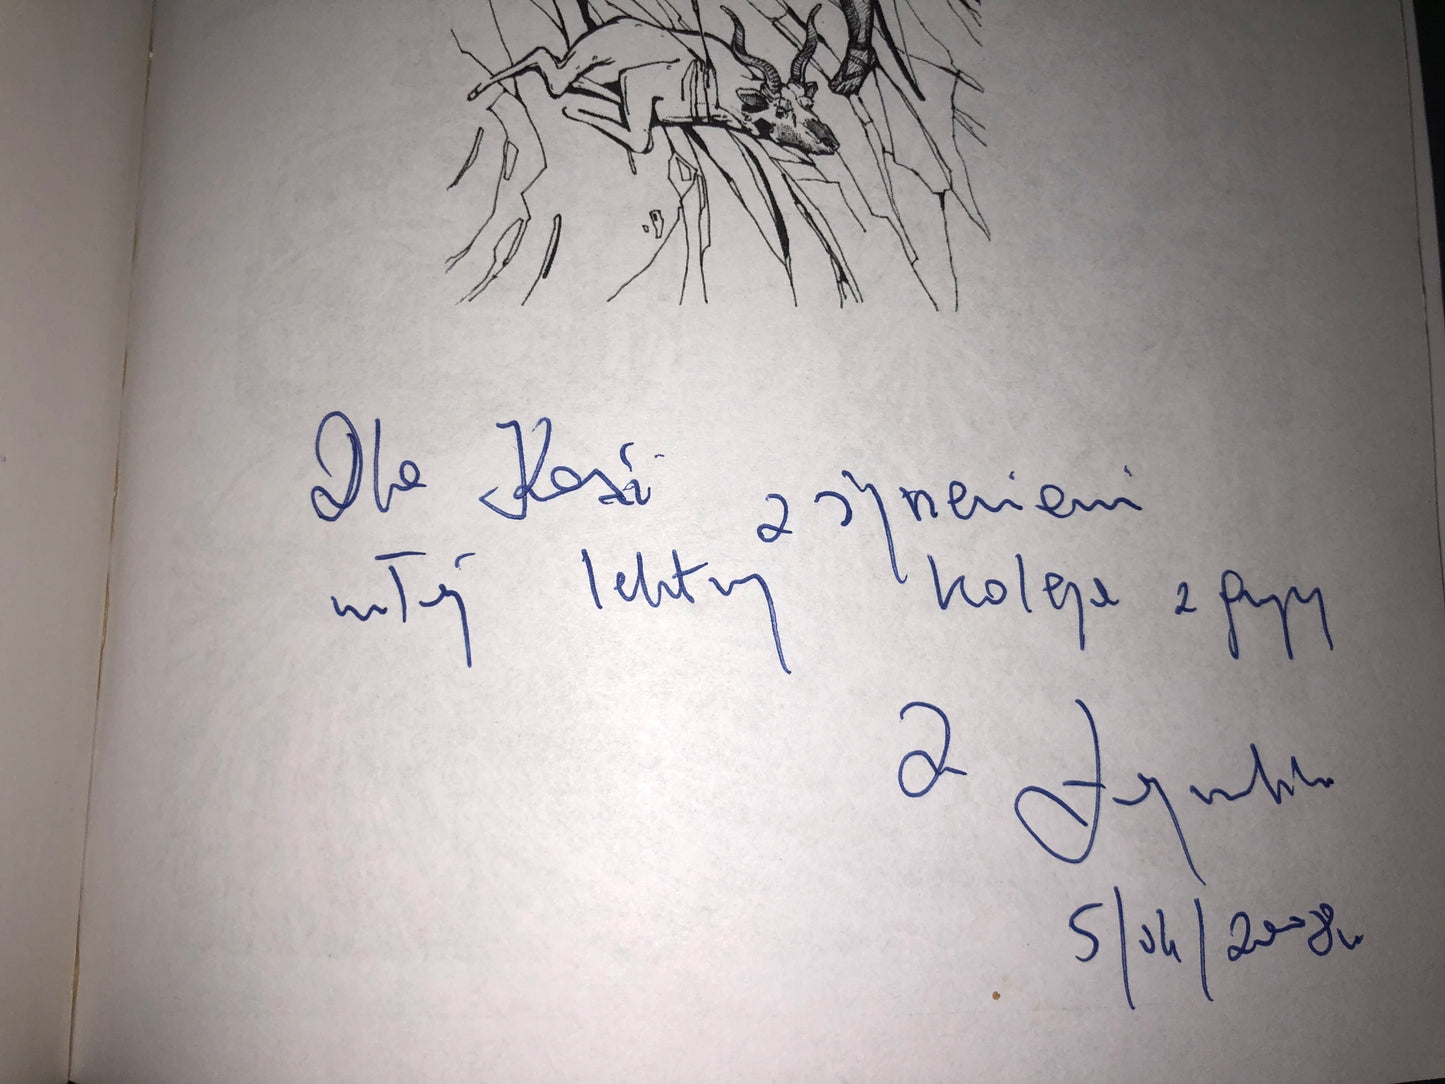 Dla Kasi z życzeniami
miłej lektury kolega z grupy
Z
5/04/2008r